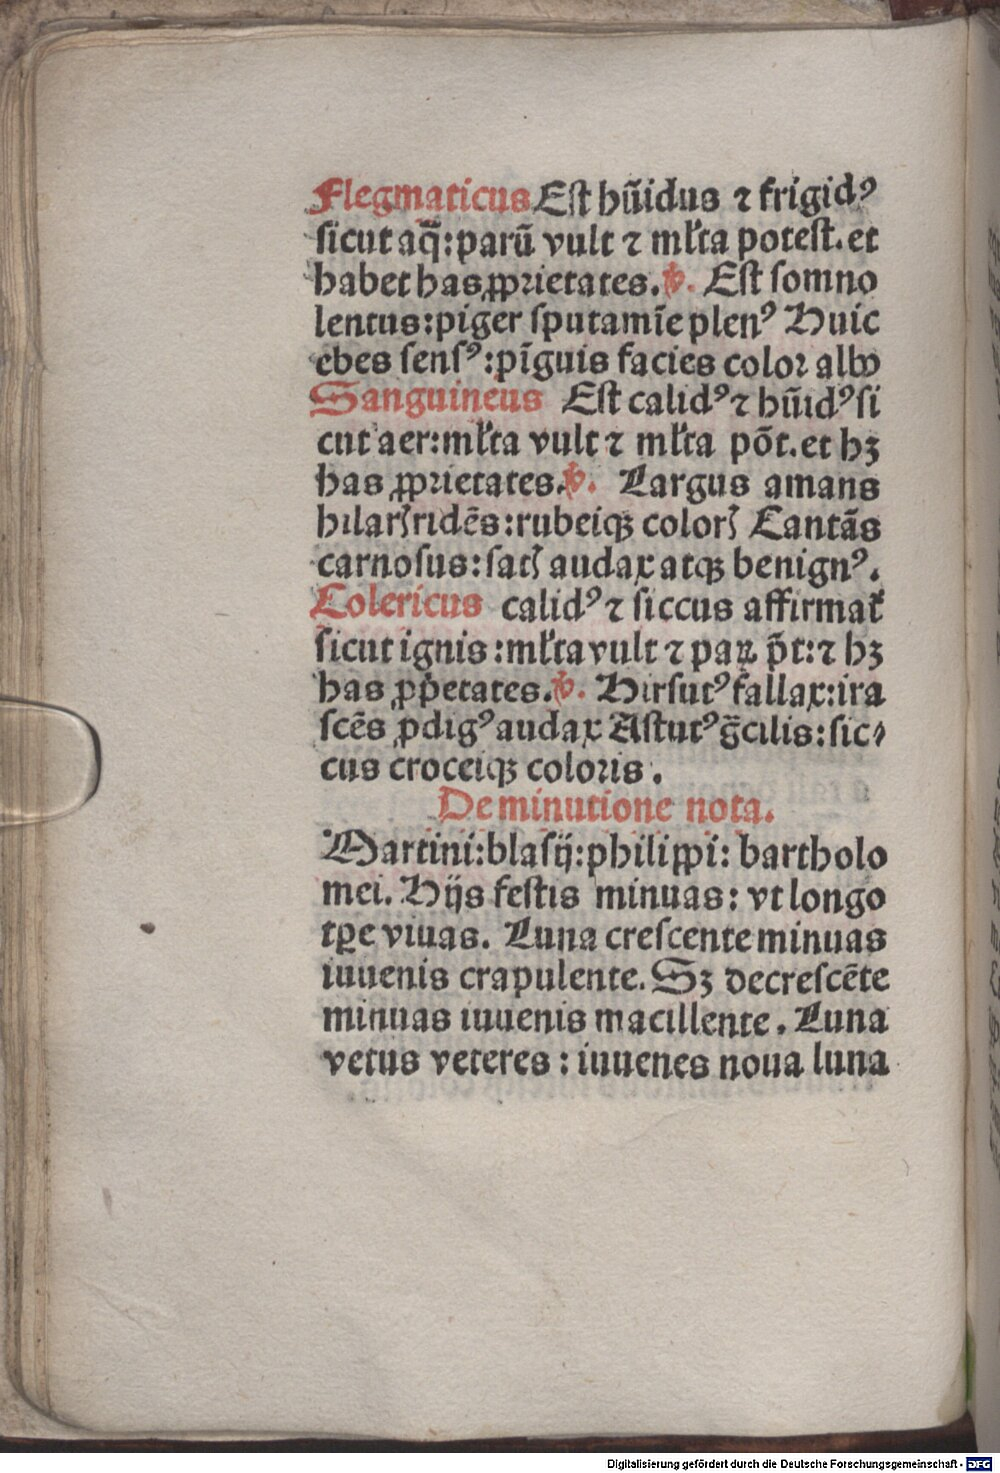 Flegmaticus Est hũidus ⁊ frigidꝰ
ſicut aq̃: parũ vult ⁊ ml̛ta poteſt. et
habet has ꝓprietates. ꝟ. Eſt ſomno
lentus: piger ſputamīe plenꝰ Huic
ebes ſenſꝰ: pīguis facies color albo
Sanguineus Eſt calidꝰ ⁊ hũidꝰ ſi
cut aer: ml̛ta vult ⁊ ml̛ta põt. et hꝫ
has ꝓprietates. ꝟ. Largus amans
hilarꝭ ridẽs: rubeiqꝫ colorꝭ Cantãs
carnoſus: ſatꝭ audax atqꝫ benignꝰ.
Colericus calidꝰ ⁊ ſiccus affirmat᷑
ſicut ignis: ml̛ta vult ⁊ paꝝ p̃t: ⁊ hꝫ
has ꝓp̃etates. ꝟ. Hirſutꝰ fallax: ira
ſcẽs ꝓdigꝰ audax Aſtutꝰ g̃cilis: ſic⸗
cus croceiqꝫ coloris.
De minutione nota.
Martini: blaſij: philippi: bartholo
mei. Hijs feſtis minuas: vt longo
tꝑe viuas. Luna creſcente minuas
iuuenis crapulente. Sꝫ decreſcẽte
minuas iuuenis macillente. Luna
vetus veteres: iuuenes noua luna
Digitalisierung gefördert durch die Deutsche Forschungsgemeinschaft - DFG